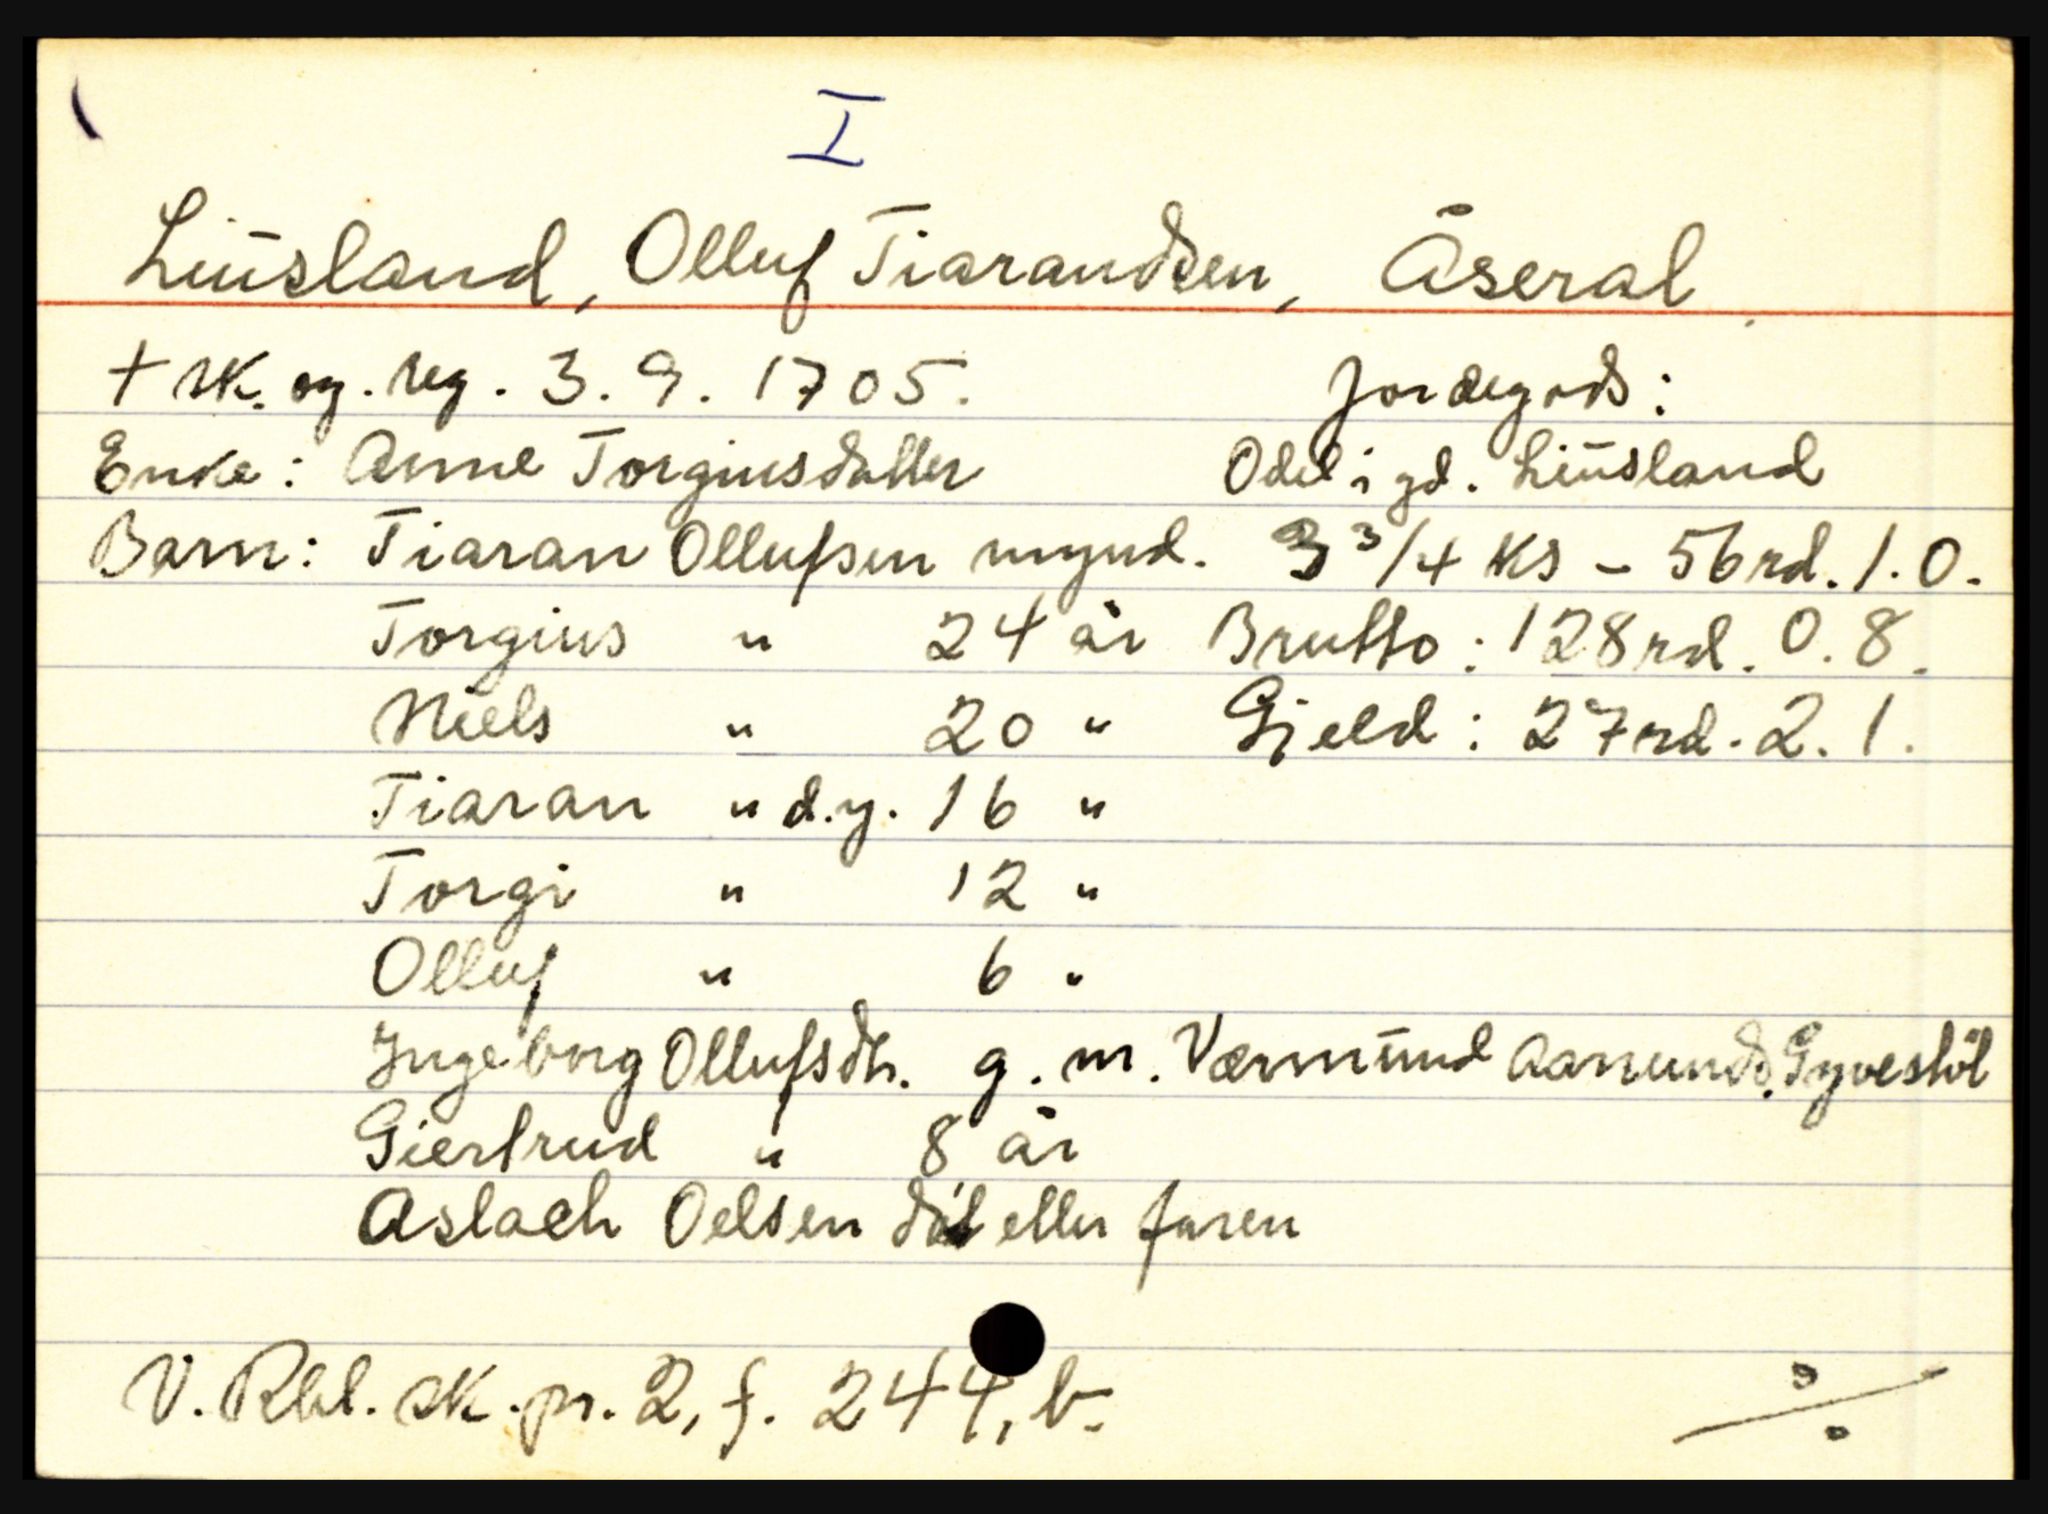 I
Liusland, Olluf Tiarandsen, Åseral
+ sk. og. reg. 3. 9. 1705. Jordegods:
Enke: Anne Torgiusdatter Odel i gd. Liusland
Barn: Tiaran Ollufsen mynd. 3 3/4 ks - 56 rd. 1. 0.
Torgius " 24 år Brutto: 128 rd. 0. 8.
Niels " 20 " Gjeld: 27 rd. 2. 1.
Tiaran " d.y. 16 "
Torgi " 12 "
Olluf " 6 "
Ingeborg Ollufsdtr. g. m. Værmund Aanunds. Gyvestöl
Giertrud " 8 år
Aslach Oelsen eller faren
V. Rbl. sk. pr. 2, f. 244, b.